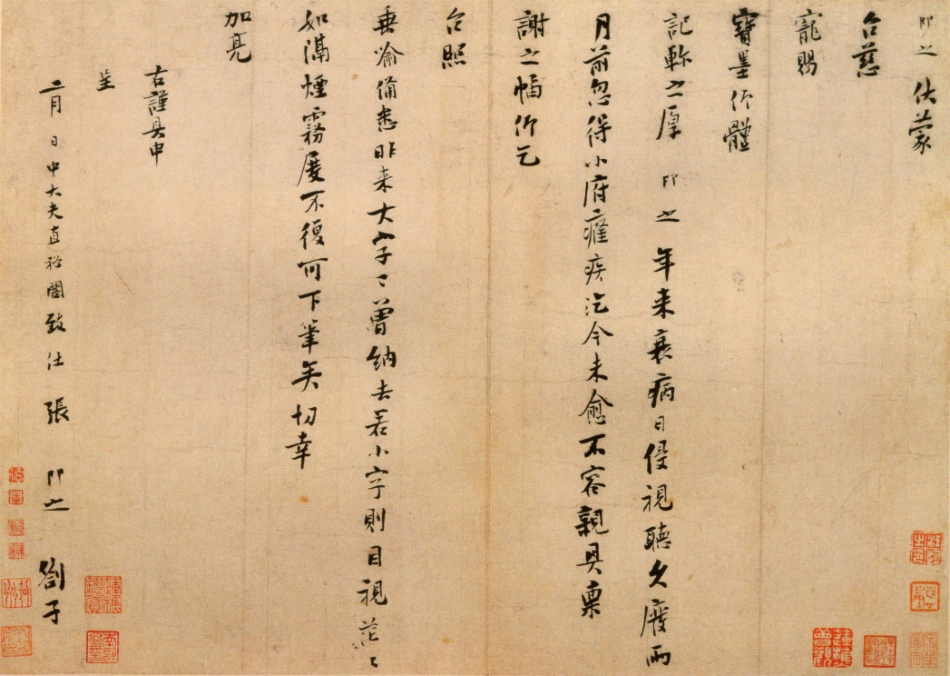 即之伏蒙
台慈
寵賜
寶墨仰體
記軫之厚即之年来衰病日侵視聽久廢兩
月前忽得小府癰疾迄今未愈不容親具稟
謝之幅仰乞
台照
垂喻備悉昨来大字〻曽納去若小字則目視茫〻
如隔煙霧屡不復可下筆矣切幸
加亮
右謹具申
呈
二月 日中大夫直秘閣致仕張 即之 劄子